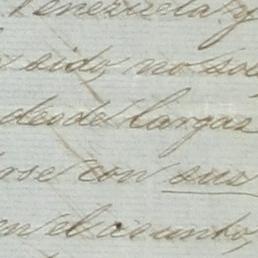 Venezuela, y
sido, no so
desde largas
rse con sus
en el asunto,